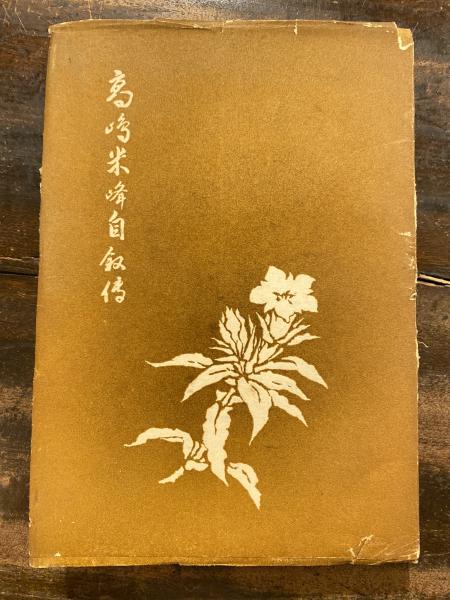 高嶋米峰自叙傳